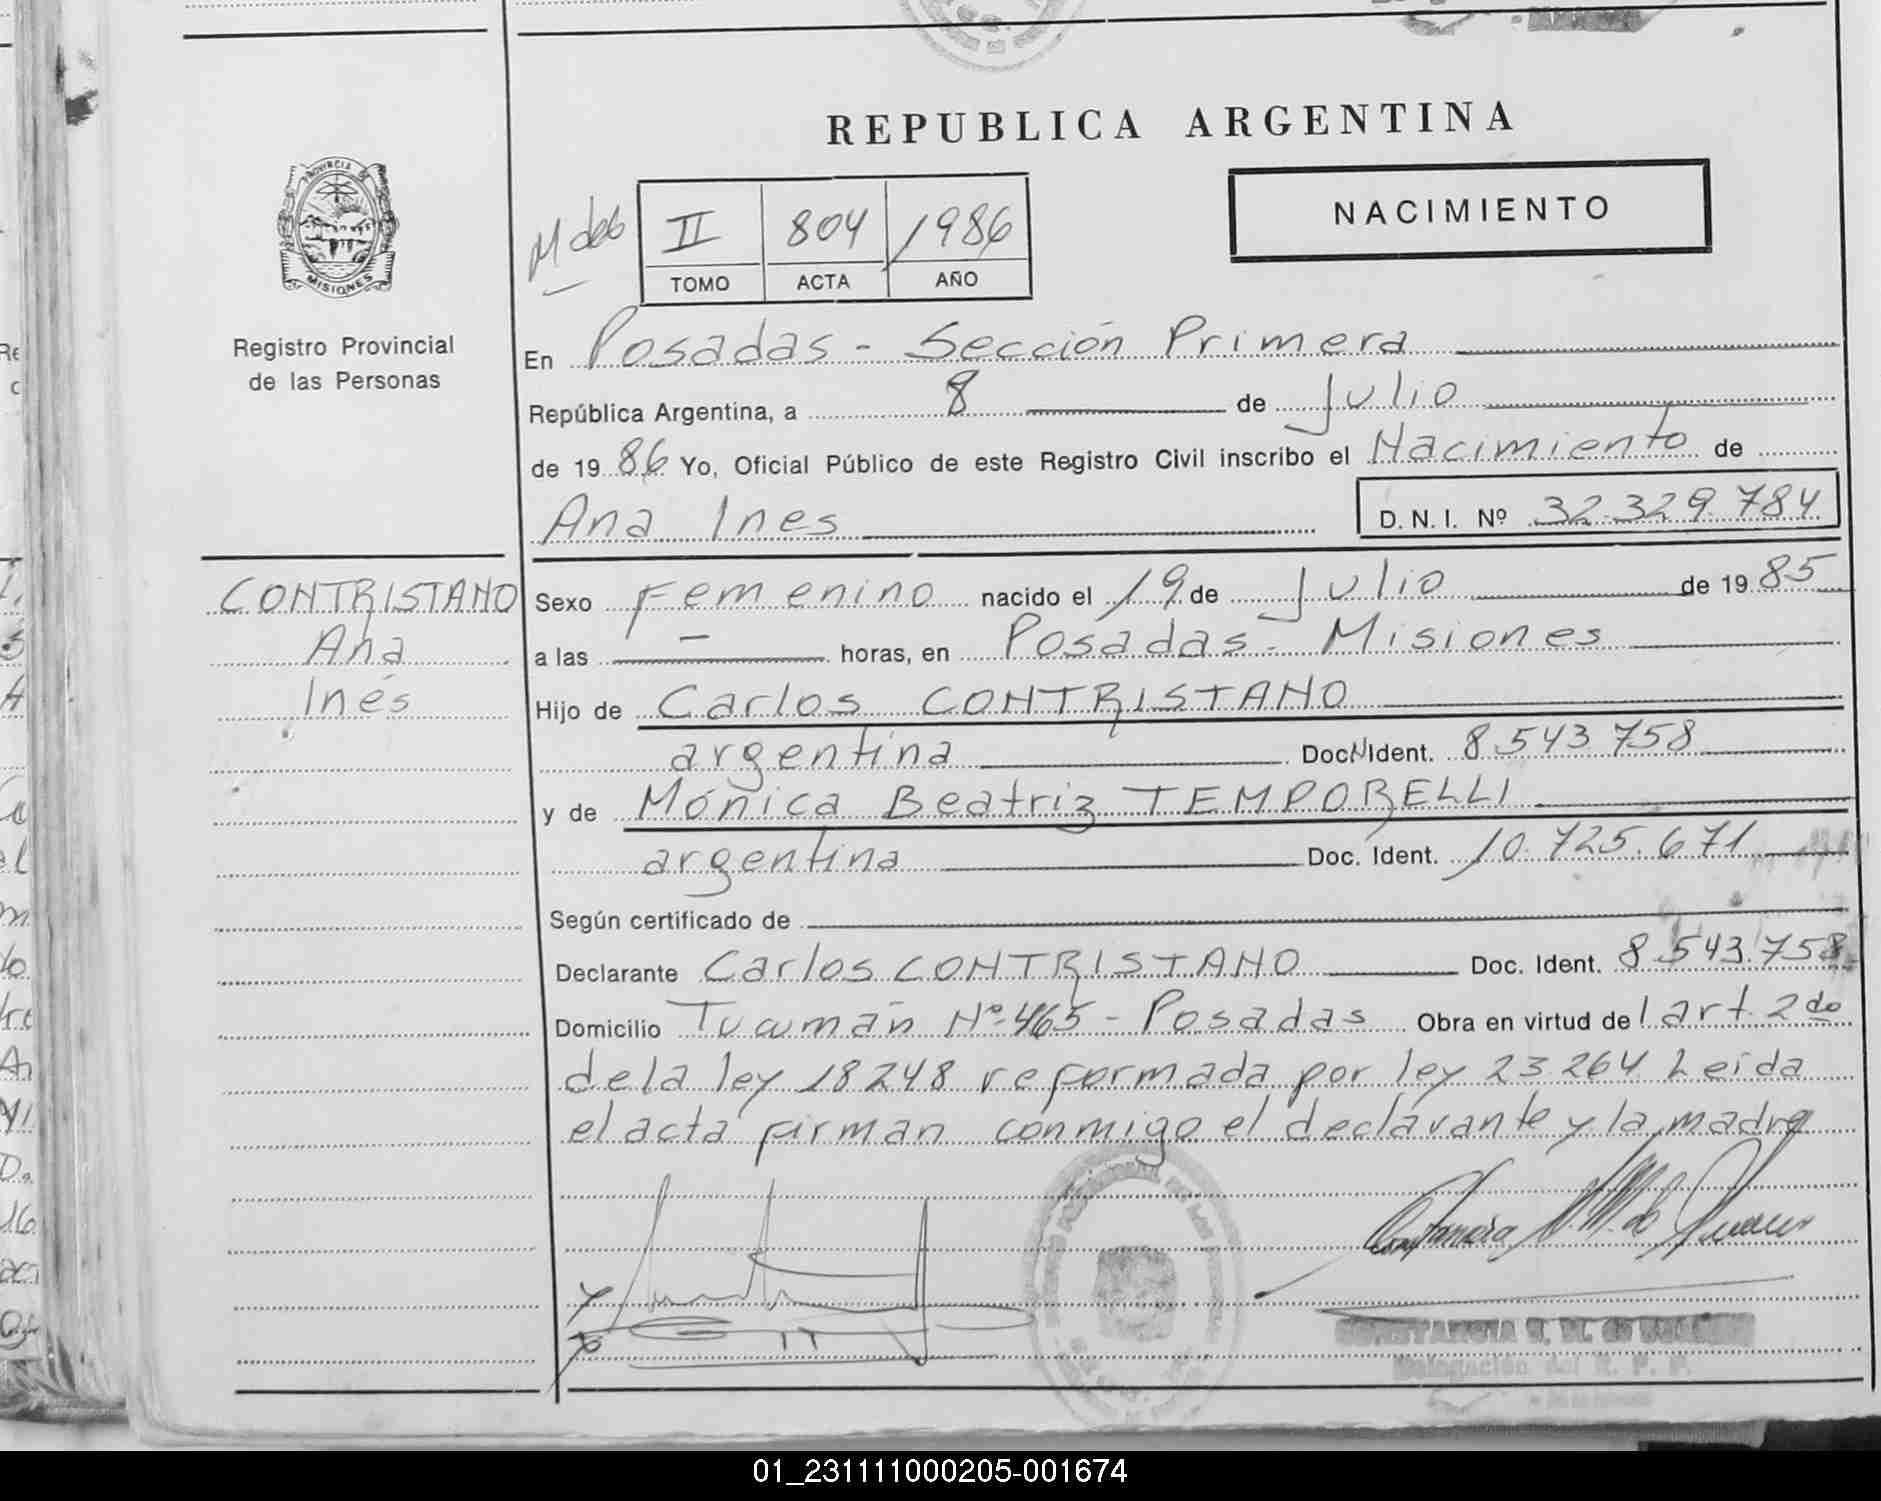 REPUBLICA ARGENTINA
NACIMIENTO
PROVINCIA DE MISIONES
Registro Provincial
de las Personas
II 804 1986
TOMO ACTA AÑO
En Posadas - Sección Primera
República Argentina, a 8 de Julio
de 1986 Yo, Oficial Público de este Registro Civil inscribo el Nacimiento de
Ana Ines D. N. I. Nº 32.329.784
CONTRISTANO
Ana
Inés
Sexo Femenino nacido el 19 de Julio de 1985
a las — horas, en Posadas - Misiones
Hijo de Carlos CONTRISTANO
argentina Doc. Ident. 8.543.758
y de Mónica Beatriz TEMPORELLI
argentina Doc. Ident. 10.725.671
Según certificado de
Declarante Carlos CONTRISTANO Doc. Ident. 8.543.758
Domicilio Tucumán Nº 465 - Posadas Obra en virtud del art. 2do
de la ley 18248 reformada por ley 23264 Leida
el acta firman conmigo el declarante y la madre
Delegación del R. P. P.
01_231111000205-001674